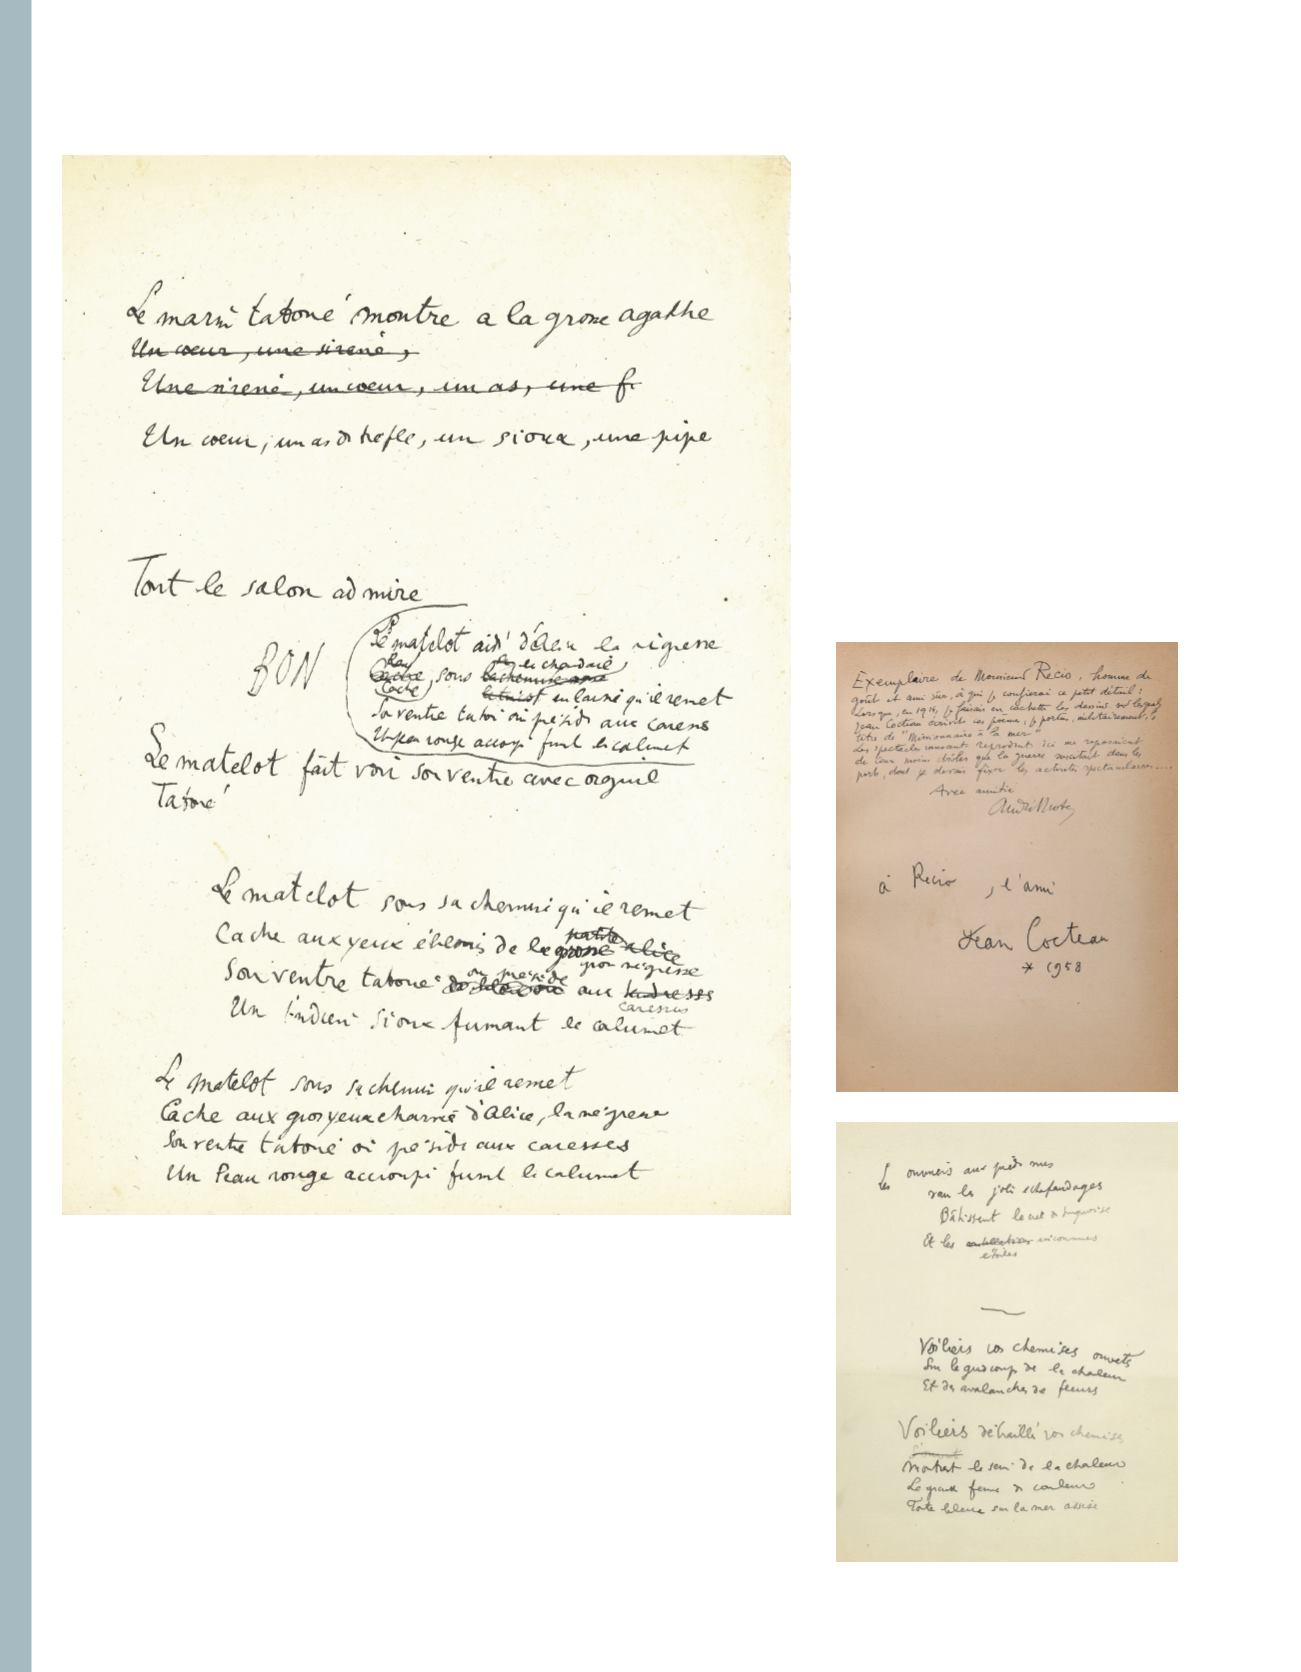 Le marin tatoué montre a la grosse agathe
Un cœur, une sirène,
Une sirène, un cœur, un as, une f
Un cœur, un as de trefle, un sioux, une pipe
Tout le salon admire
BON
Le matelot d'Alice la négresse
Cache, sous
en laine qu'il remet
Son ventre tatoué où préside aux caresses
Un peau rouge accroupi fume le calumet
Le matelot fait voir son ventre avec orgueil
Tatoué
Le matelot sous sa chemise qu'il remet
Cache aux yeux éblouis de la grosse alice
petite
négresse
Son ventre tatoué où préside aux
caresses
Un indien sioux fumant le calumet
Le matelot sous sa chemise qu'il remet
Cache aux gros yeux charmés d'Alice, la négresse
Son ventre tatoué où préside aux caresses
Un Peau rouge accroupi fume le calumet
Exemplaire de Monsieur Recio, homme de
goût et ami sûr, à qui je confierai ce petit détail :
Lorsque, en 1916, je faisais en cachette les dessins sur lesquels
Jean Cocteau écrivit ces poèmes, je portais, militairement, le
titre de "Missionnaire à la mer"
Les spectacles amusants reproduits ici me reposaient
de ceux moins drôles que la guerre suscitait dans les
ports, dont je devais fixer les activités spectaculaires....
Avec amitié
à Recio, l'ami
Jean Cocteau
* 1958
Les ouvriers aux pieds nus
sur les jolis échafaudages
Bâtissent le ciel de turquoise
Et les inconnues
étoiles
Voiliers vos chemises ouvertes
Sur le de la chaleur
Et des avalanches de fleurs
Voiliers vos chemises
Montrent le sein de la chaleur
La grande femme de couleur
Toute bleue sur la mer assise